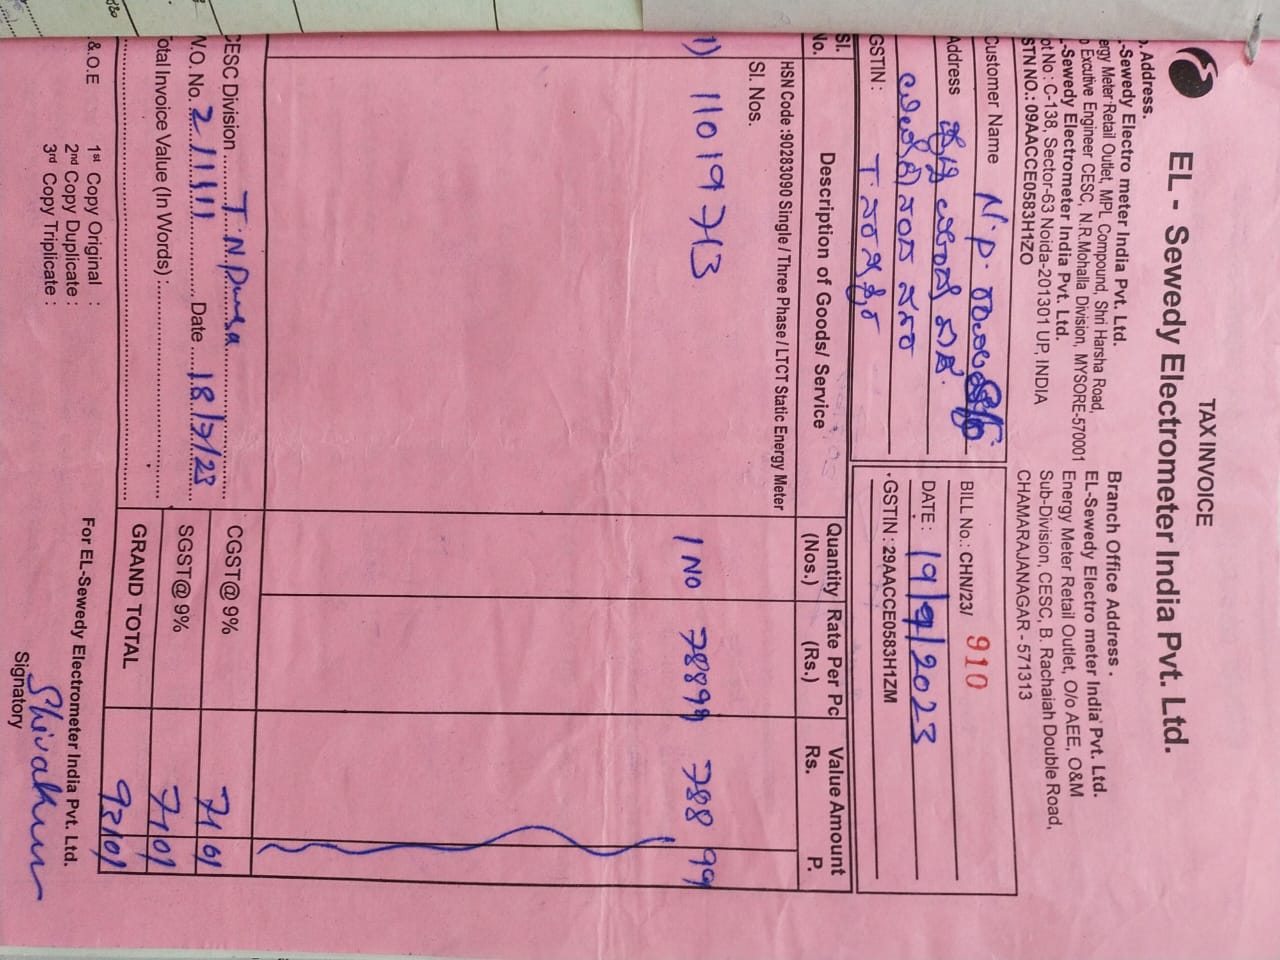 TAX INVOICE
EL - Sewedy Electrometer India Pvt. Ltd.
. Address.
-Sewedy Electro meter India Pvt. Ltd.
ergy Meter Retail Outlet, MPL Compound, Shri Harsha Road,
o Excutive Engineer CESC, N.R.Mohalla Division, MYSORE-570001
-Sewedy Electrometer India Pvt. Ltd.
ot No : C-138, Sector-63 Noida-201301 UP, INDIA
STN NO.: 09AACCE0583H1ZO
Branch Office Address .
EL-Sewedy Electro meter India Pvt. Ltd.
Energy Meter Retail Outlet, O/o AEE, O&M
Sub-Division, CESC, B. Rachaiah Double Road,
CHAMARAJANAGAR - 571313
Customer Name N.P.
Address
GSTIN :
BILL No.: CHN/23/ 910
DATE : 19/9/2023
GSTIN : 29AACCE0583H1ZM
Sl. No. Description of Goods/ Service Quantity (Nos.) Rate Per Pc (Rs.) Value Amount Rs. P.
HSN Code :90283090 Single / Three Phase / LTCT Static Energy Meter
Sl. Nos.
1) 11019713 1 NO 78899 788 99
CESC Division T.N.Pura
N.O. No. 2/1111 Date 18/7/23
otal Invoice Value (In Words) :
CGST@ 9% 71 01
SGST@ 9% 71 01
GRAND TOTAL 931 01
.&.O.E
1st Copy Original :
2nd Copy Duplicate :
3rd Copy Triplicate :
For EL-Sewedy Electrometer India Pvt. Ltd.
Signatory